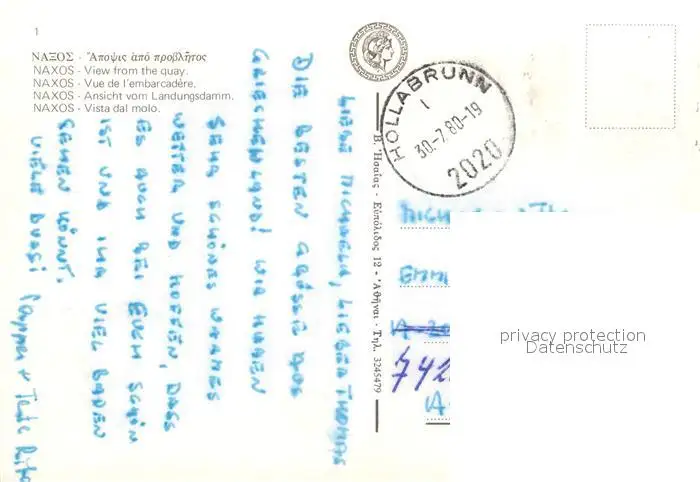 1
ΝΑΞΟΣ - Ἄποψις ἀπό προβλῆτος
NAXOS - View from the quay.
NAXOS - Vue de l'embarcadère.
NAXOS - Ansicht vom Landungsdamm.
NAXOS - Vista dal molo.
HOLLABRUNN
1
30.-7.80-19
2020
LIEBE MICHAELA, LIEBER THOMAS
DIE BESTEN GRÜSSE AUS
GRIECHENLAND! WIR HABEN
SEHR SCHÖNES WARMES
WETTER UND HOFFEN, DASS
ES AUCH BEI EUCH SCHÖN
IST UND IHR VIEL BADEN
GEHEN KÖNNT.
VIELE BUSSI
Β. Ἡσαΐας - Εὐπόλιδος 12 - Ἀθῆναι - Τηλ. 3245479
742
A-
privacy protection
Datenschutz